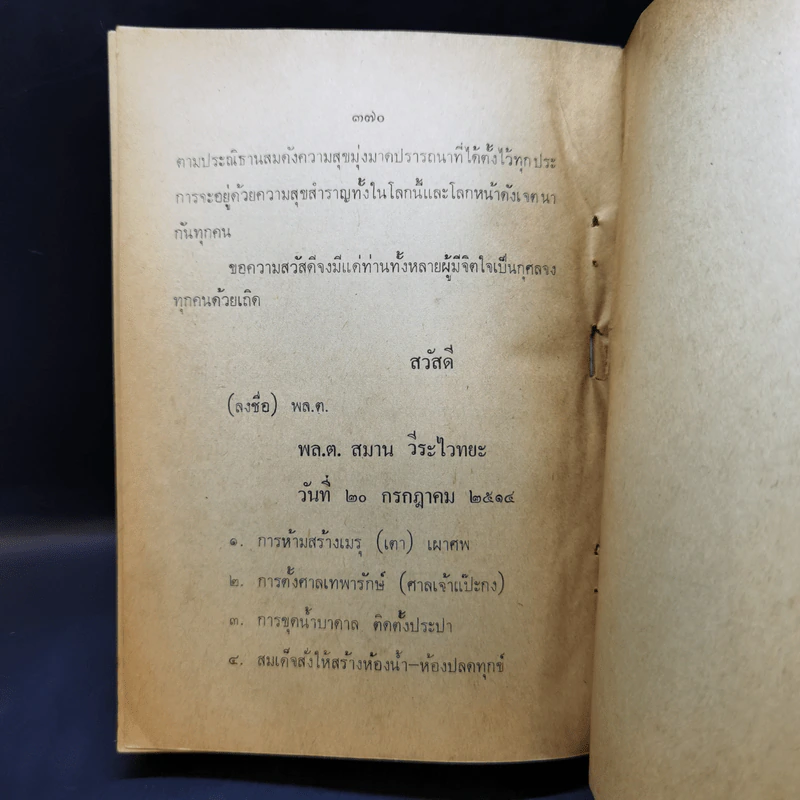 ๓๗๐
ตามประณิธานสมดังความสุขมุ่งมาดปรารถนาที่ได้ตั้งไว้ทุกประ
การจะอยู่ด้วยความสุขสำราญทั้งในโลกนี้และโลกหน้าดังเจตนา
กันทุกคน
ขอความสวัสดีจงมีแด่ท่านทั้งหลายผู้มีจิตใจเป็นกุศลจง
ทุกคนด้วยเถิด
สวัสดี
(ลงชื่อ) พล.ต.
พล.ต. สมาน วีระไวทยะ
วันที่ ๒๐ กรกฎาคม ๒๕๑๔
๑. การห้ามสร้างเมรุ (เตา) เผาศพ
๒. การตั้งศาลเทพารักษ์ (ศาลเจ้าแป๊ะกง)
๓. การขุดน้ำบาดาล ติดตั้งประปา
๔. สมเด็จสั่งให้สร้างห้องน้ำ–ห้องปลดทุกข์